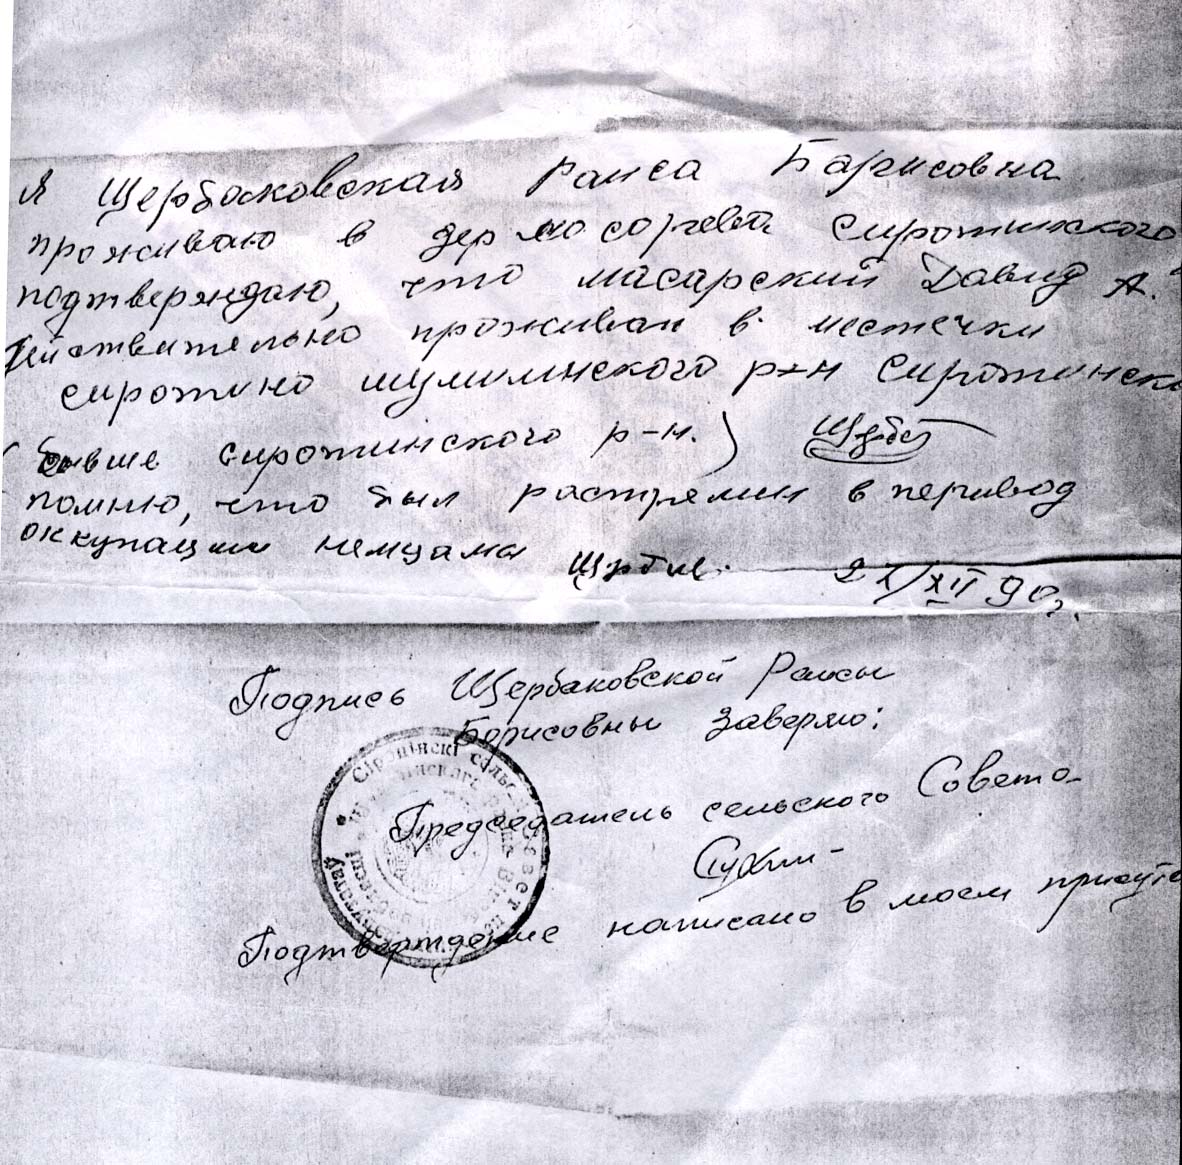 Я Щербаковская Раиса Барисовна
проживаю в дер мосорева сиротинского
подтверждаю, что масарский Давид А.
действительно проживал в местечки
сиротино шумилинского р-н Сиротинск
(бывше сиротинского р-н.)
помню, что был растрелин в перивод
оккупации немцами 2X/XII 90г.
Подпись Щербаковской Раисы
Борисовны заверяю:
Председатель сельского Совета
Подтверждение написано в моем присутс
Сіроцінскі сельскі Савет